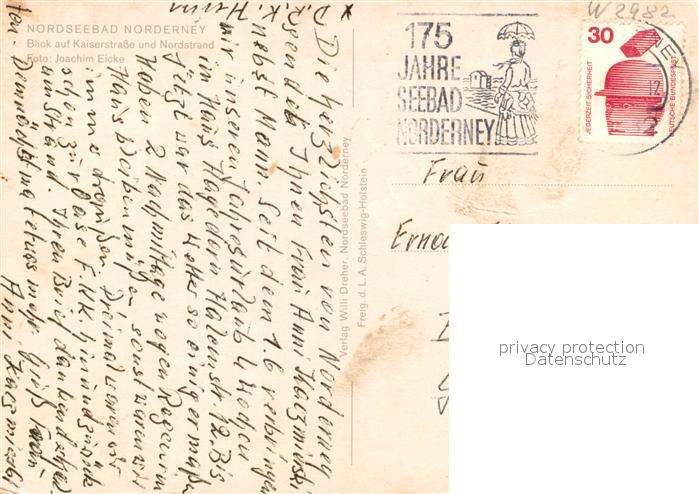 NORDSEEBAD NORDERNEY
Blick auf Kaiserstraße und Nordstrand
Foto: Joachim Eicke
Verlag Willi Dreher, Nordseebad Norderney
Freig. d. L.A. Schleswig-Holstein
175
JAHRE
SEEBAD
NORDERNEY
30
JEDERZEIT SICHERHEIT
DEUTSCHE BUNDESPOST
W2982
Frau
D.R.K. Heim
Die herzlichsten von Norderney
sendet Ihnen Frau Anni
nebst Mann. Seit dem 1.6 verbringen
wir unseren Jahresurlaub 4 Wochen
im Haus Hagedorn Hafenstr. 12. Bis
Jetzt war das Wetter so einigermaßen
Haben 2 Nachmittage wegen Regen im
Haus bleiben müssen sonst waren wir
immer draußen. Dreimal waren wir
schon zur Oase F.K.K. hin und zurück
am Strand. Ihren Brief dankend
ten. Demnächst mal etwas mehr Gruß Frau
Anni
privacy protection
Datenschutz